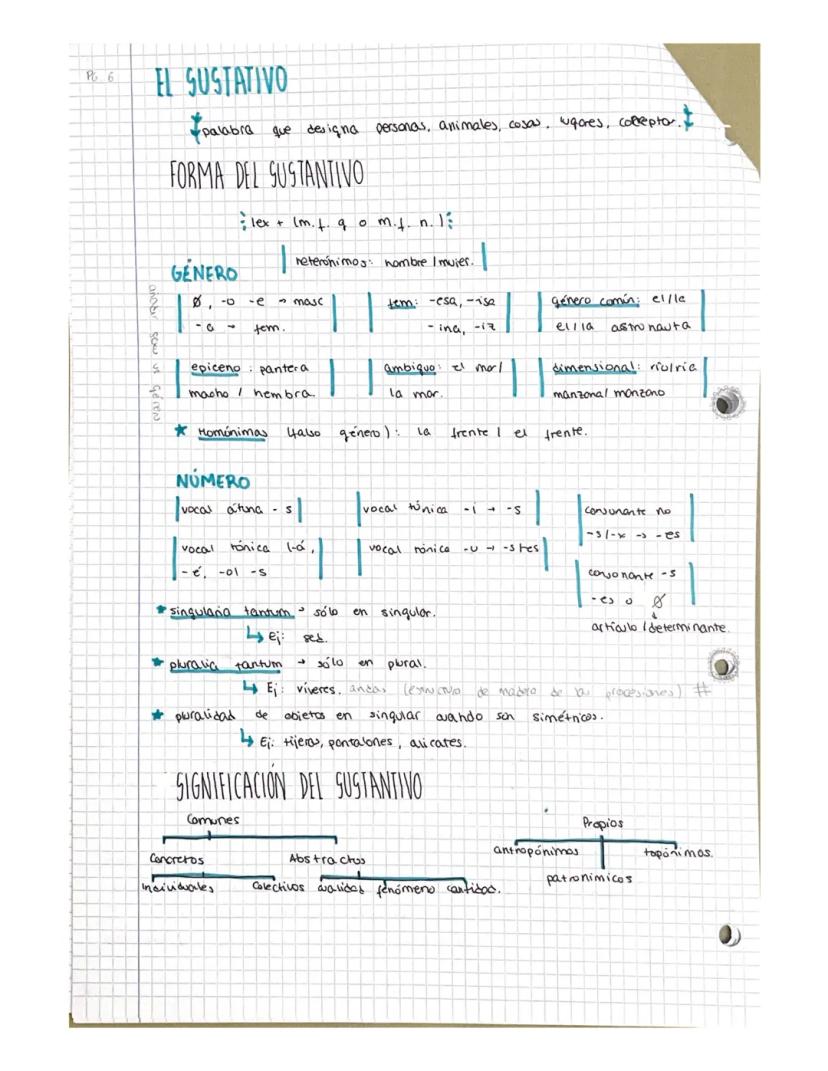 PG 6
EL SUSTATIVO
palabra que designa personas, animales, cosas, lugares, concepto.
FORMA DEL SUSTANTIVO
lex + (m.f. g o m.f. n.)
heterónimos: hombre / mujer.
GÉNERO
Ø, -o -e → masc
-a → fem.
fem: -esa, -isa
-ina, -iz
género común: el/la
el/la astronauta
epiceno: pantera
macho / hembra.
ambiguo: el mar/
la mar.
dimensional: río/ría
manzana/ manzano
★ Homónimas (falso género): la frente / el frente.
NÚMERO
vocal átona - s
vocal tónica -i → -s
consonante no
-s/-x → -es
vocal tónica (-á,
-é, -o) -s
vocal tónica -u → -s/es
consonante -s
-es o Ø
artículo /determinante.
★ singularia tantum → sólo en singular.
↳ ej: sed.
★ pluralia tantum → sólo en plural.
↳ Ej: víveres, andas (estructura de madera de las procesiones) #
★ pluralidad de objetos en singular cuando son simétricos.
↳ Ej: tijeras, pantalones, alicates.
SIGNIFICACIÓN DEL SUSTANTIVO
Comunes
Propios
Concretos Abstractos
antropónimos topónimos.
patronímicos
Individuales Colectivos cualidad fenómeno cantidad.